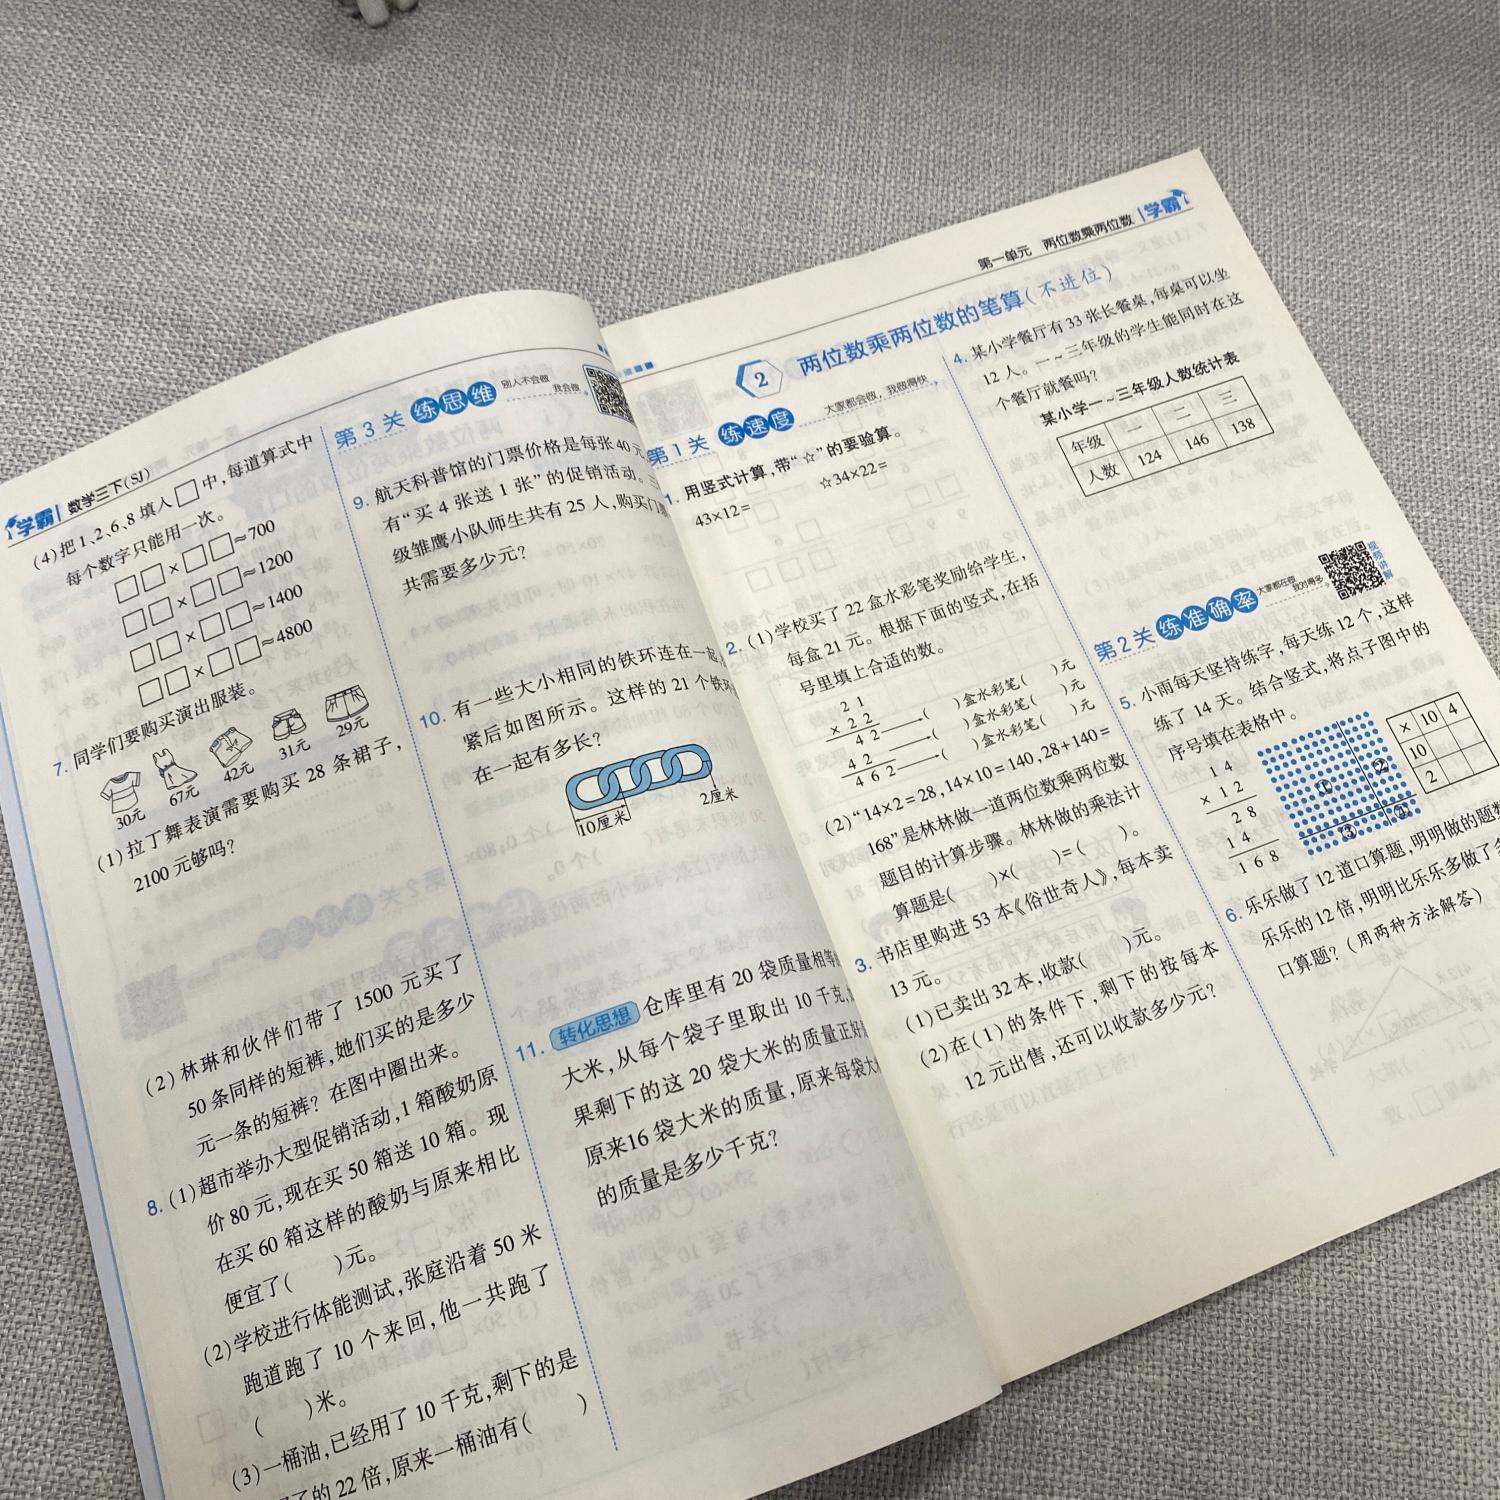 学霸 数学三下(SJ)
(4)把1、2、6、8填入□中,每道算式中
每个数字只能用一次。
□□×□□≈700
□□×□□≈1200
□□×□□≈1400
□□×□□≈4800
7. 同学们要购买演出服装。
30元 67元 42元 31元 29元
(1)拉丁舞表演需要购买28条裙子,
2100元够吗?
(2)林琳和伙伴们带了1500元买了
50条同样的短裤,她们买的是多少
元一条的短裤?在图中圈出来。
8. (1)超市举办大型促销活动,1箱酸奶原
价80元,现在买50箱送10箱。现
在买60箱这样的酸奶与原来相比
便宜了( )元。
(2)学校进行体能测试,张庭沿着50米
跑道跑了10个来回,他一共跑了
( )米。
(3)一桶油,已经用了10千克,剩下的是
了的22倍,原来一桶油有( )
第3关 练思维 别人不会做 我会做
9. 航天科普馆的门票价格是每张40元
有“买4张送1张”的促销活动。三
级雏鹰小队师生共有25人,购买门票
共需要多少元?
10. 有一些大小相同的铁环连在一起
紧后如图所示。这样的21个铁环
在一起有多长?
10厘米 2厘米
11. 转化思想 仓库里有20袋质量相等
大米,从每个袋子里取出10千克,
果剩下的这20袋大米的质量正好
原来16袋大米的质量,原来每袋大
的质量是多少千克?
第一单元 两位数乘两位数 学霸
2 两位数乘两位数的笔算(不进位)
第1关 练速度 大家都会做,我做得快
1. 用竖式计算,带“☆”的要验算。
43×12= ☆34×22=
2. (1)学校买了22盒水彩笔奖励给学生,
每盒21元。根据下面的竖式,在括
号里填上合适的数。
2 1
× 2 2
4 2 ( )盒水彩笔( )元
4 2 ( )盒水彩笔( )元
4 6 2 ( )盒水彩笔( )元
(2)“14×2=28,14×10=140,28+140=
168”是林林做一道两位数乘两位数
题目的计算步骤。林林做的乘法计
算题是( )×( )=( )。
3. 书店里购进53本《俗世奇人》,每本卖
13元。
(1)已卖出32本,收款( )元。
(2)在(1)的条件下,剩下的按每本
12元出售,还可以收款多少元?
4. 某小学餐厅有33张长餐桌,每桌可以坐
12人。一~三年级的学生能同时在这
个餐厅就餐吗?
某小学一~三年级人数统计表
年级 一 二 三
人数 124 146 138
第2关 练准确率 大家都在做 我对得多 视频讲解
5. 小雨每天坚持练字,每天练12个,这样
练了14天。结合竖式,将点子图中的
序号填在表格中。
1 4
× 1 2
2 8
1 4
1 6 8
① ② ③ ④
× 10 4
10
2
6. 乐乐做了12道口算题,明明做的题数
乐乐的12倍,明明比乐乐多做了多
口算题?(用两种方法解答)